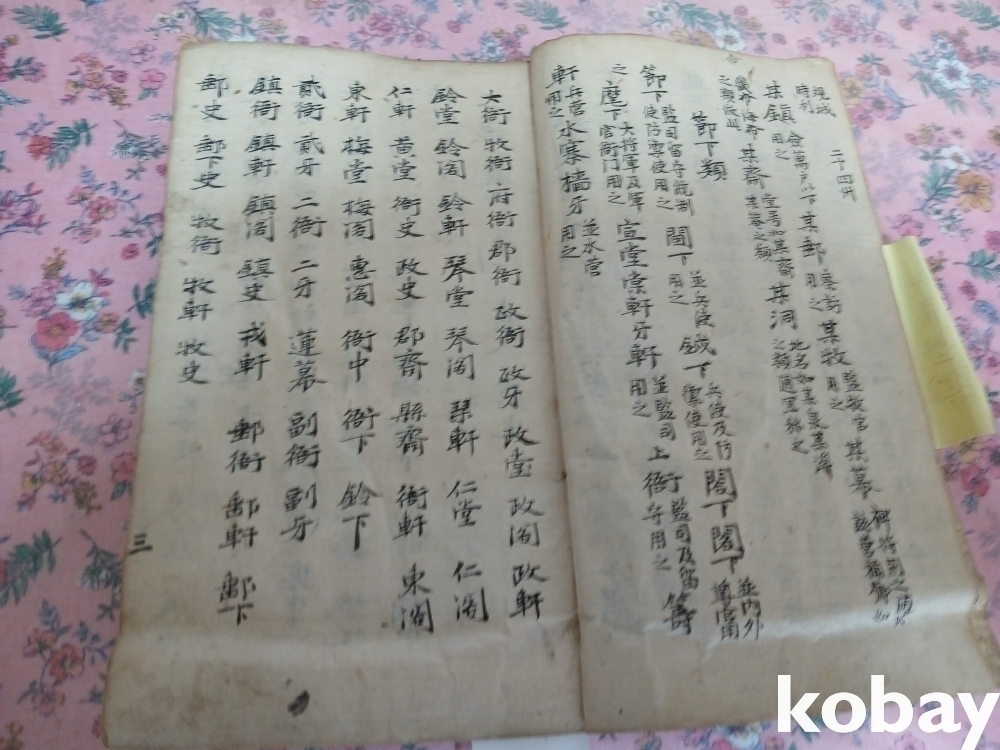 時利
二十四卅
某鎮 僉萬戶以下用之 某郵 察訪用之 某牧 監牧官用之 某幕
某齋 堂号如某齋某菴之類 某洞 地名如某泉某澤之類通里稱之
節下類
節下 監司留守統制使防禦使用之 閫下 並兵使用之 鉞下 兵使及防禦使用之 閤下 閣下 並內外
之 麾下 大將軍及軍官衙門用之 宣堂 棠軒 牙軒 並監司用之 上衙 監司及留守用之 籌
軒 兵營用之 水寨 檣牙 並水營用之
大衙 牧衙 府衙 郡衙 政衙 政牙 政堂 政閣 政軒
鈴堂 鈴閣 鈴軒 琴堂 琴閣 琴軒 仁堂 仁閣
仁軒 黃堂 衙史 政史 郡齋 縣齋 衙軒 東閣
東軒 梅堂 梅閣 惠閣 衙中 衙下 鈴下
貳衙 貳牙 二衙 二牙 蓮幕 副衙 副牙
鎮衙 鎮軒 鎮閣 鎮史 戎軒 郵衙 郵軒 郵下
郵史 郵下史 牧衙 牧軒 牧史
三
kobay